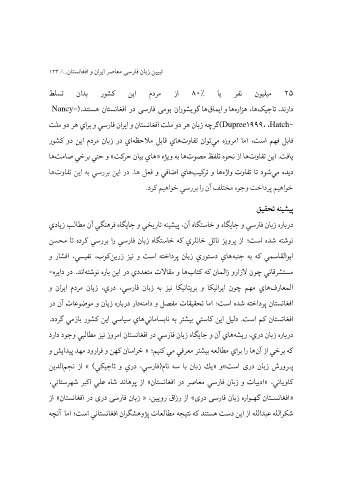 تبیین زبان فارسی معاصر ایران و افغانستان.../ ۱۲۳
۲۵ میلیون نفر یا ۸۰٪ از مردم این کشور بدان تسلط
دارند. تاجیک‌ها، هزاره‌ها و ایماق‌ها گویشوران بومی فارسی در افغانستان هستند.(Nancy-
Dupree۱۹۹۹، Hatch-)گرچه زبان هر دو ملت افغانستان و ایران فارسی و برای هر دو ملت
قابل فهم است، اما امروزه می‌توان تفاوت‌های قابل ملاحظه‌ای در زبان مردم این دو کشور
یافت. این تفاوت‌ها از نحوه تلفظ مصوت‌ها به ویژه «های بیان حرکت» و حتی برخی صامت‌ها
دیده می‌شود تا تفاوت واژه‌ها و ترکیب‌های اضافی و فعل ها. در این بررسی به این تفاوت‌ها
خواهیم پرداخت وجوه مختلف آن را بررسی خواهیم کرد.
پیشینه تحقیق
درباره زبان فارسی و جایگاه و خاستگاه آن، پیشینه تاریخی و جایگاه فرهنگی آن مطالب زیادی
نوشته شده است؛ از پرویز ناتل خانلری که خاستگاه زبان فارسی را بررسی کرده تا محسن
ابوالقاسمی که به جنبه‌های دستوری زبان پرداخته است و نیز زرین‌کوب، نفیسی، افشار و
مستشرقانی چون لازارو ژالمان که کتاب‌ها و مقالات متعددی در این باره نوشته‌اند. در دایره-
المعارف‌های مهم چون ایرانیکا و بریتانیکا نیز به زبان فارسی، دری، زبان مردم ایران و
افغانستان پرداخته شده است؛ اما تحقیقات مفصل و دامنه‌دار درباره زبان و موضوعات آن در
افغانستان کم است. دلیل این کاستی بیشتر به نابسامانی‌های سیاسی این کشور بازمی گردد.
درباره زبان دری، ریشه‌های آن و جایگاه زبان فارسی در افغانستان امروز نیز مطالبی وجود دارد
که برخی از آن‌ها را برای مطالعه بیشتر معرفی می کنیم: « خراسان کهن و فرارود مهد پیدایش و
پرورش زبان دری است»و «یك زبان با سه نام(فارسی، دری و تاجیکی) » از نجم‌الدین
کاویانی، «ادبیات و زبان فارسی معاصر در افغانستان» از پوهاند شاه علی اکبر شهرستانی،
«افغانستان گهواره زبان فارسی دری» از رزاق رویین، « زبان فارسی دری در افغانستان» از
شکرالله عبدالله از این دست هستند که نتیجه مطالعات پژوهشگران افغانستانی است؛ اما آنچه